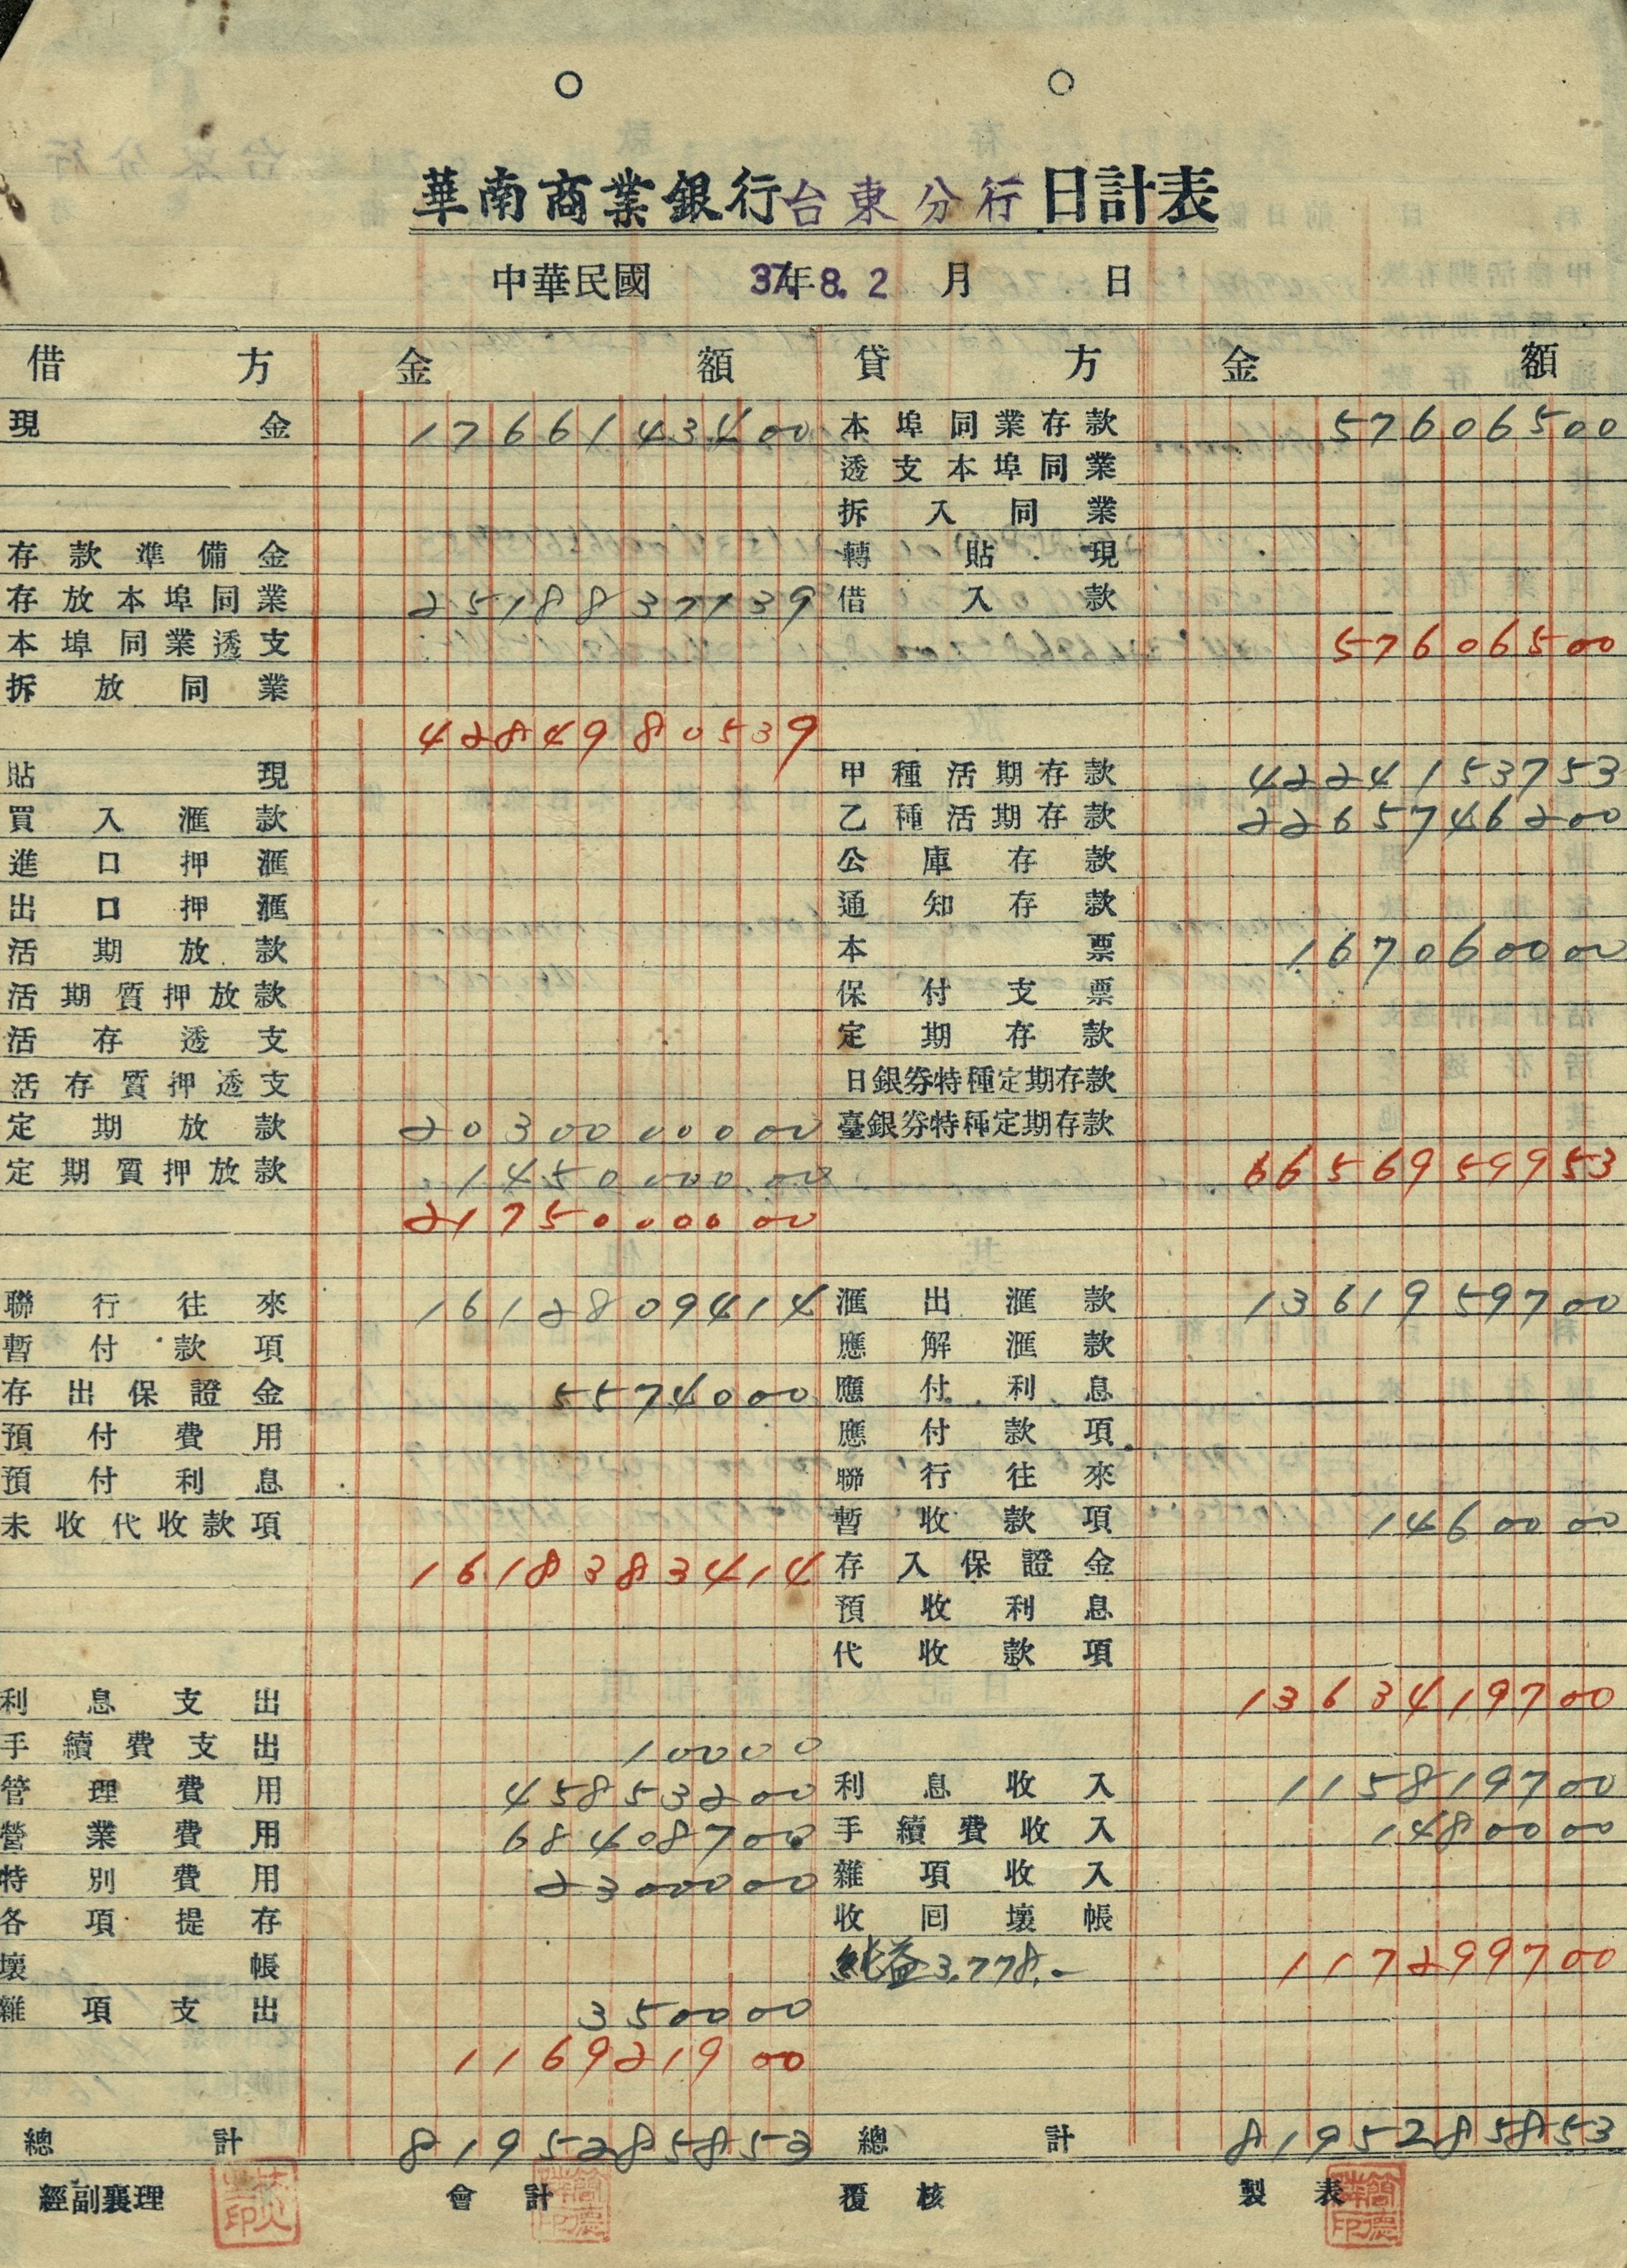 華南商業銀行台東分行日計表
中華民國 37年8.2 月 日
借方 金額 貸方 金額
現金 1766143400 本埠同業存款 57606500
透支本埠同業
拆入同業
存款準備金 轉貼現
存放本埠同業 2518837139 借入款
本埠同業透支 57606500
拆放同業
4284980539
貼現 甲種活期存款 4224153753
買入滙款 乙種活期存款 2265746200
進口押滙 公庫存款
出口押滙 通知存款
活期放款 本票 167060000
活期質押放款 保付支票
活存透支 定期存款
活存質押透支 日銀券特種定期存款
定期放款 2030000000 臺銀券特種定期存款
定期質押放款 145000000 6656959953
2175000000
聯行往來 1612809414 滙出滙款 1361959700
暫付款項 應解滙款
存出保證金 5574000 應付利息
預付費用 應付款項
預付利息 聯行往來
未收代收款項 暫收款項 1460000
1618383414 存入保證金
預收利息
代收款項
利息支出 1363419700
手續費支出 10000
管理費用 45853200 利息收入 115819700
營業費用 68408700 手續費收入 1480000
特別費用 2300000 雜項收入
各項提存 收回壞帳
壞帳 純益3,778.- 117299700
雜項支出 350000
116921900
總計 8195285853 總計 8195285853
經副襄理 會計 覆核 製表